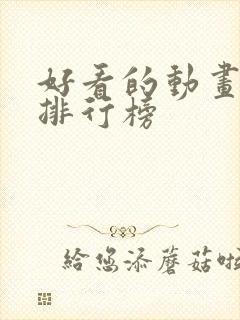 好看的動畫
排行榜
給您添蘑菇啦